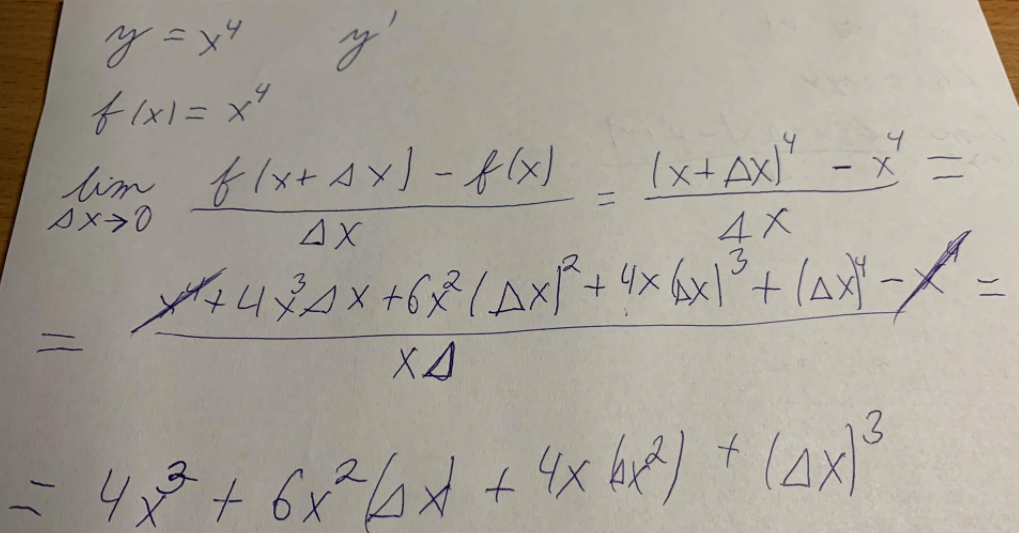 y = x⁴ y'
f(x) = x⁴
lim Δx→0 (f(x + Δx) - f(x))/Δx = ((x + Δx)⁴ - x⁴)/Δx =
= (x⁴ + 4x³Δx + 6x²(Δx)² + 4x(Δx)³ + (Δx)⁴ - x⁴)/xΔ =
= 4x³ + 6x²(Δx) + 4x(Δx²) + (Δx)³